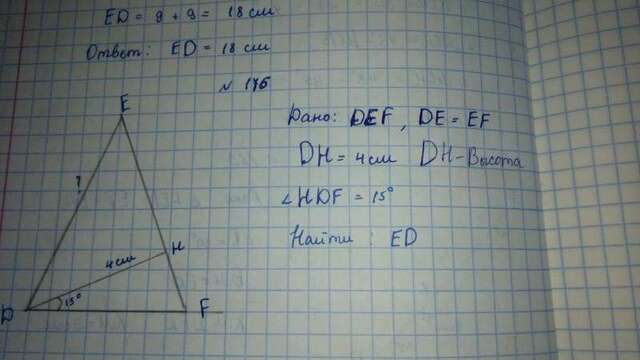 ED = 9 + 9 = 18 см
Ответ: ED = 18 см
№ 176
Дано: DEF, DE = EF
DH = 4 см DH - Высота
∠HDF = 15°
Найти: ED
E
?
H
4 см
15°
D
F